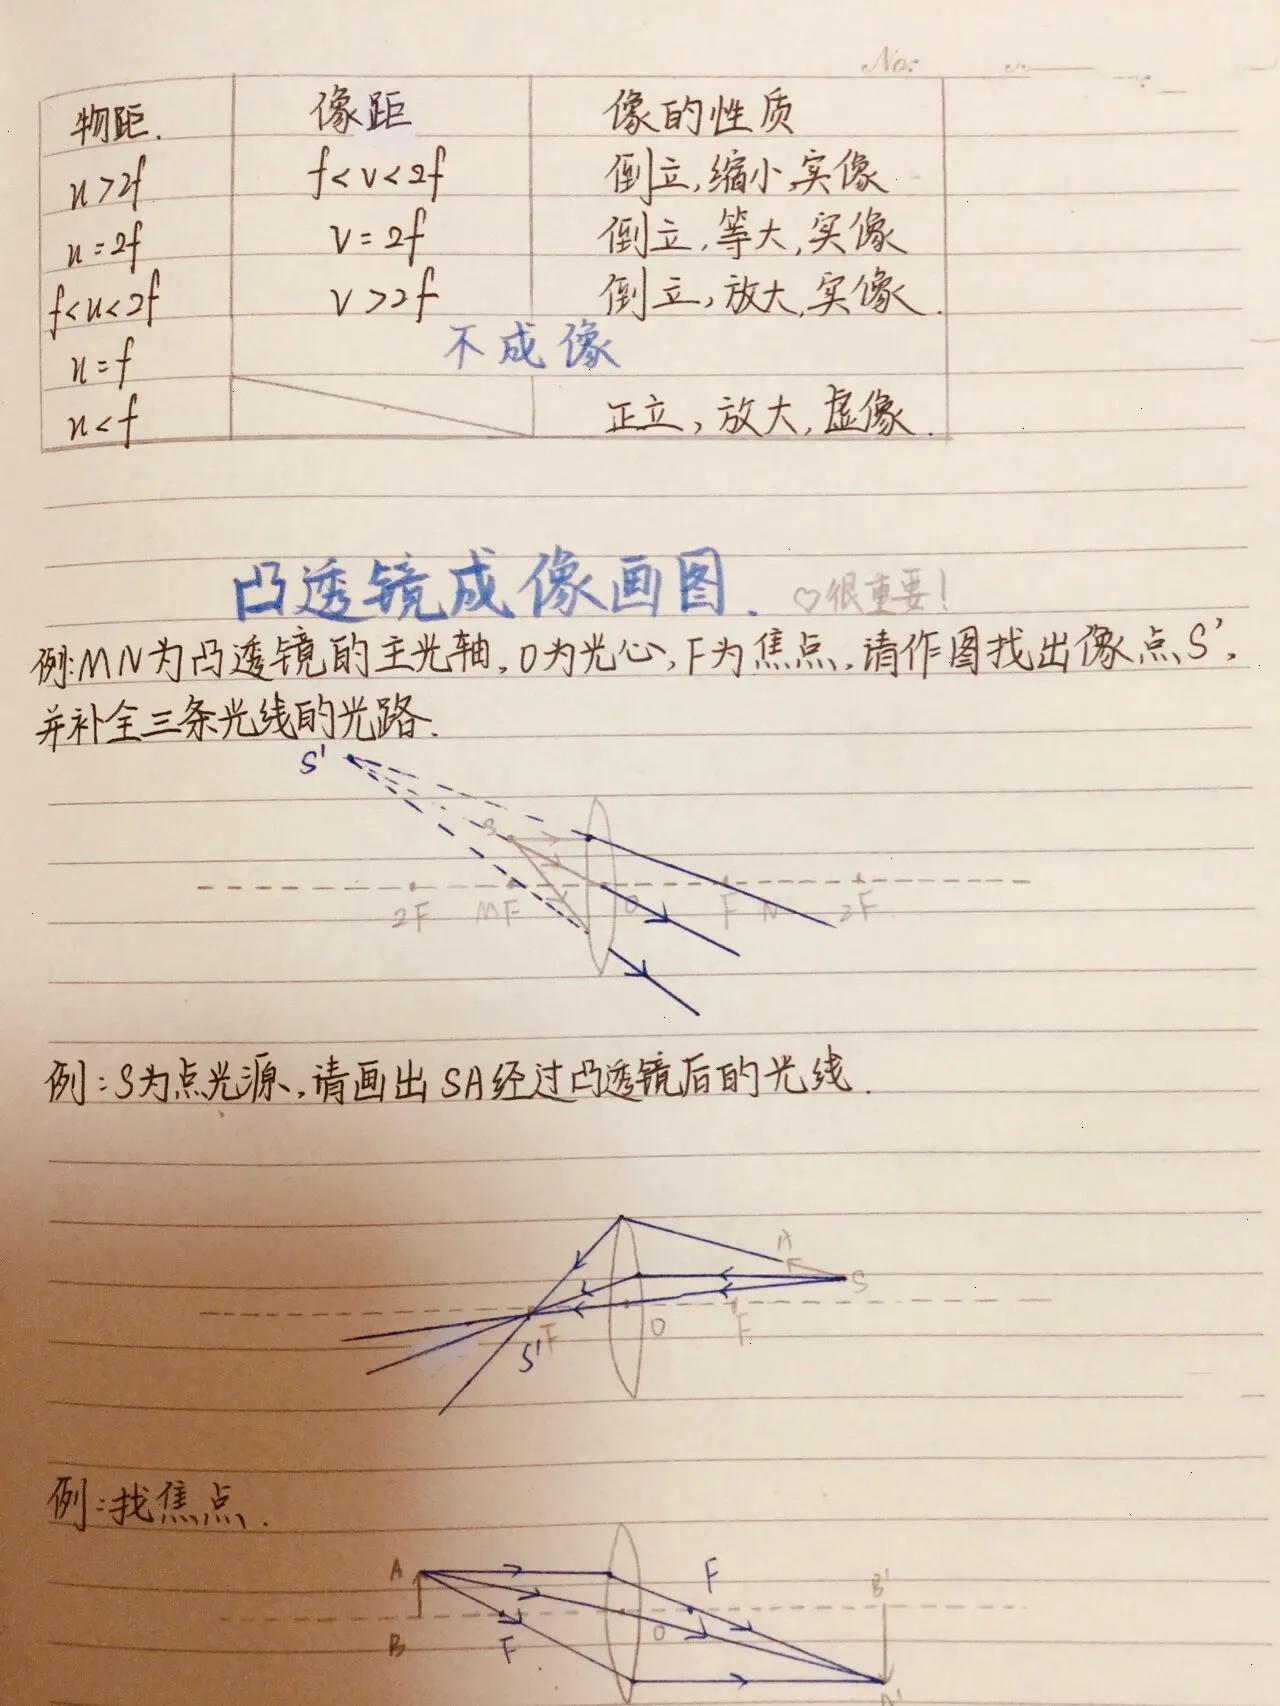 No:
物距. 像距 像的性质
u>2f f<v<2f 倒立,缩小,实像
u=2f v=2f 倒立,等大,实像
f<u<2f v>2f 倒立,放大,实像.
u=f 不成像
u<f 正立,放大,虚像.
凸透镜成像画图. ♡很重要!
例:MN为凸透镜的主光轴,O为光心,F为焦点,请作图找出像点S',
并补全三条光线的光路.
S'
S
2F M F O F N 2F
例:S为点光源,请画出SA经过凸透镜后的光线.
A
S
F O F
S'
例:找焦点.
A F B'
B F O
A'